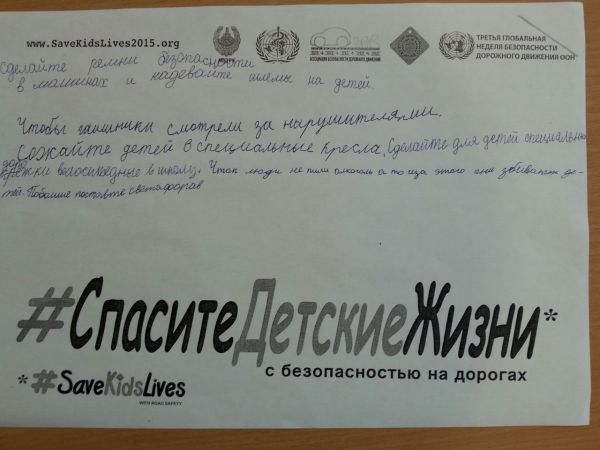 www.SaveKidsLives2015.org
ТРЕТЬЯ ГЛОБАЛЬНАЯ
НЕДЕЛЯ БЕЗОПАСНОСТИ
ДОРОЖНОГО ДВИЖЕНИЯ ООН
АССОЦИАЦИЯ БЕЗОПАСНОСТИ ДОРОЖНОГО ДВИЖЕНИЯ
Сделайте ремни безопасности
в машинах и надевайте шлемы на детей.
Чтобы гаишники смотрели за нарушителями.
Сожайте детей в специальные кресла. Сделайте для детей специальные
дорожки велосипедные в школу. Чтоп люди не пили алкоголь а то из за этого они збивают де-
тей. Побольше поставте светофоров
#СпаситеДетскиеЖизни*
с безопасностью на дорогах
*#SaveKidsLives
WITH ROAD SAFETY